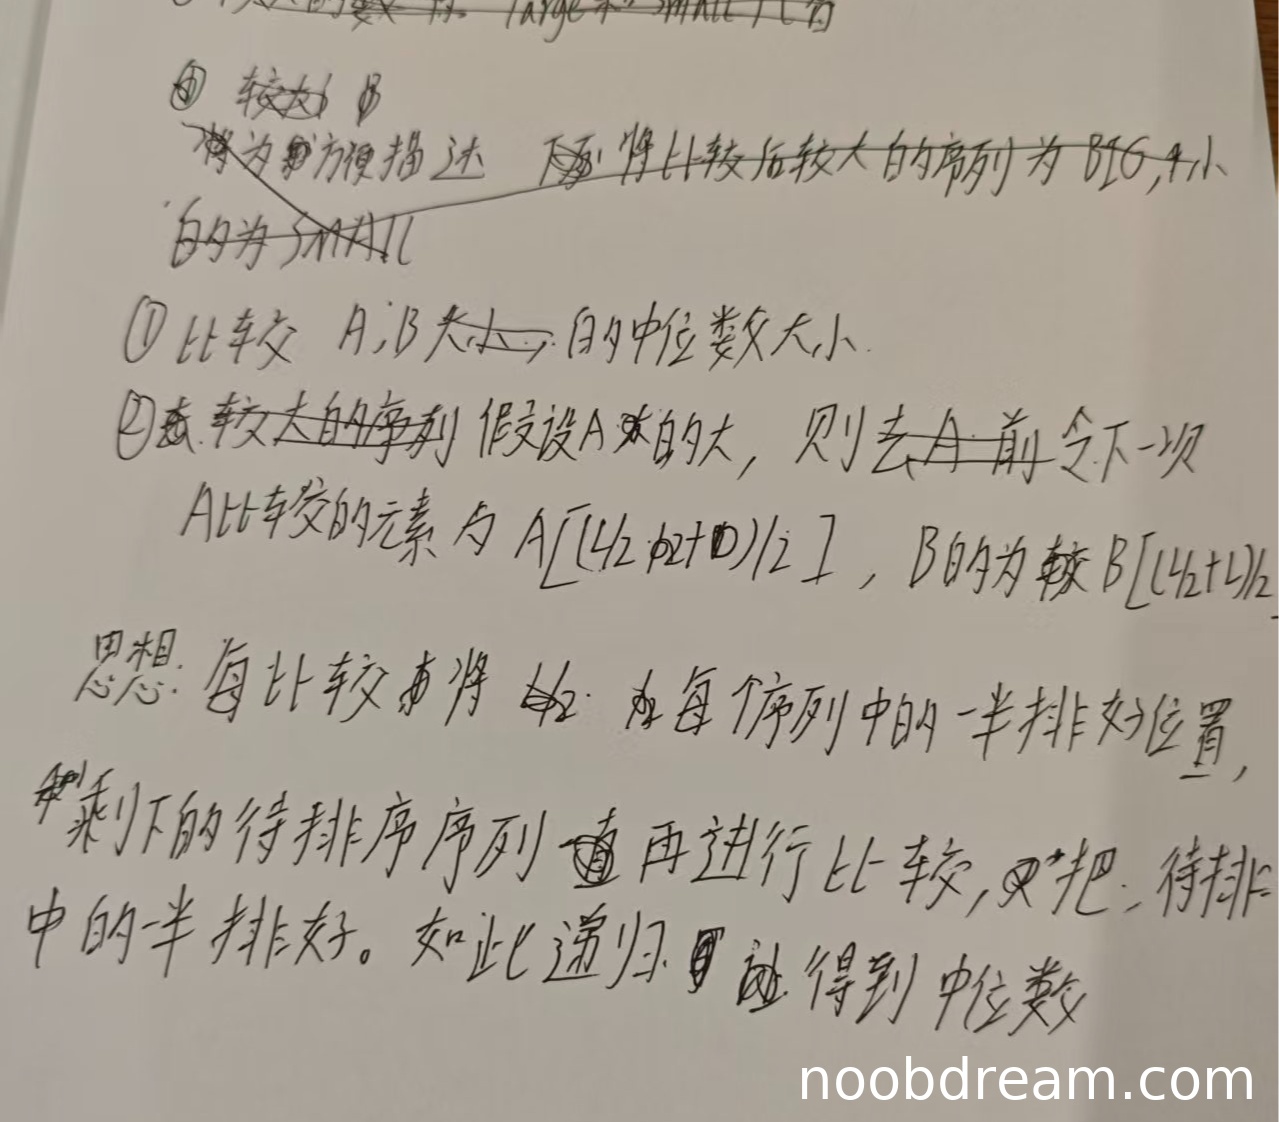 较大的数 large和small代替
④ 较大
将为方便描述 下面将比较后较大的序列为BIG,小
的为SMALL
①比较 A,B大小 的中位数大小.
②去.较大的序列 假设A的大, 则去A前 令下一次
A比较的元素为A[(L/2+0)/2], B的为B[(L/2+L)/2
思想: 每比较将 每个序列中的一半排好位置,
剩下的待排序序列 再进行比较,又把 待排
中的一半排好。如此递归 得到中位数
noobdream.com